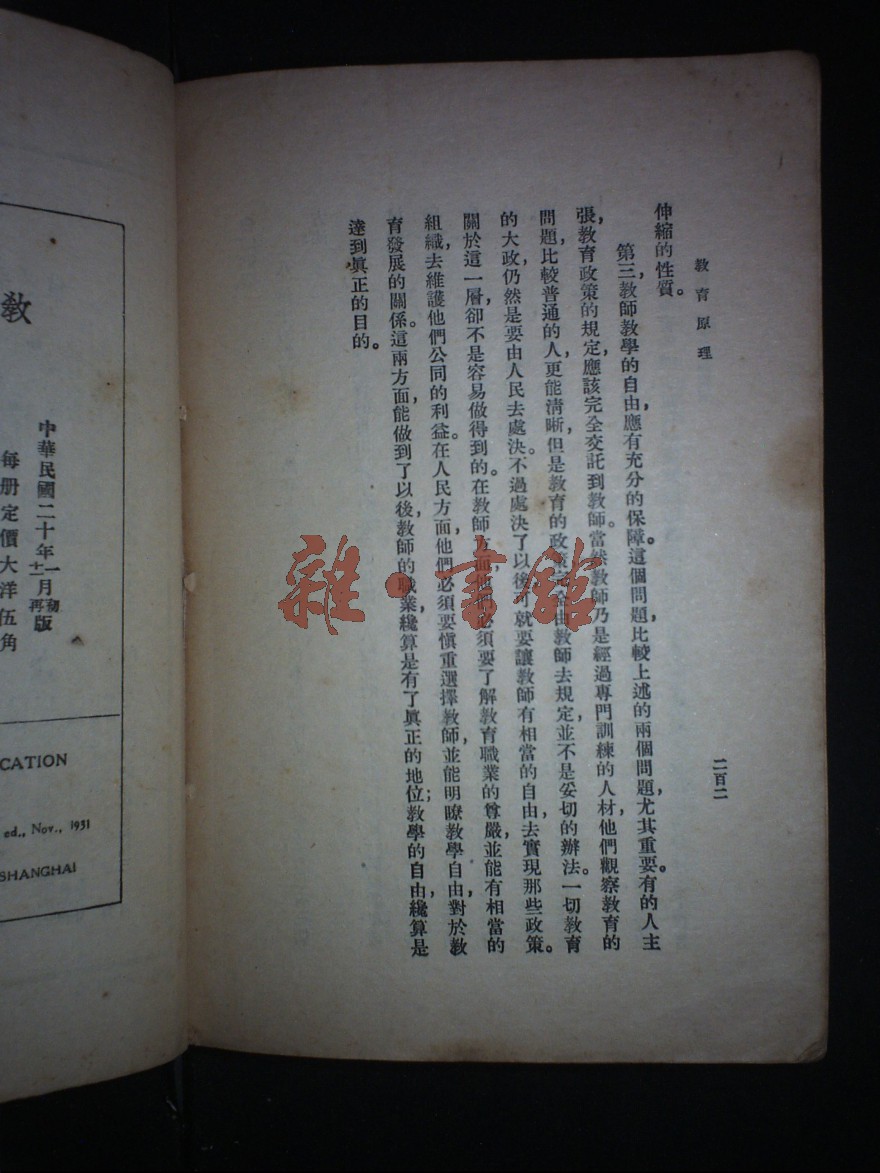 教育原理
二百二
伸縮的性質。
第三，教師教學的自由應有充分的保障。這個問題比較上述的兩個問題，尤其重要。有的人主
張，教育政策的規定，應該完全交託到教師。當然教師乃是經過專門訓練的人材，他們觀察教育的
問題，比較普通的人，更能清晰，但是教育的政策完全由教師去規定，並不是妥切的辦法。一切教育
的大政仍然是要由人民去處決。不過處決了以後，可就要讓教師有相當的自由，去實現那些政策。
關於這一層卻不是容易做得到的。在教師方面，他們必須要了解教育職業的尊嚴，並能有相當的
組織，去維護他們公同的利益。在人民方面，他們必須要慎重選擇教師，並能明瞭教學自由，對於教
育發展的關係。這兩方面，能做到了以後，教師的職業纔算是有了眞正的地位；教學的自由纔算是
達到眞正的目的。
雜·書館
教
中華民國二十年一月初版
十一 再
每册定價大洋伍角
CATION
ed., Nov., 1931
SHANGHAI